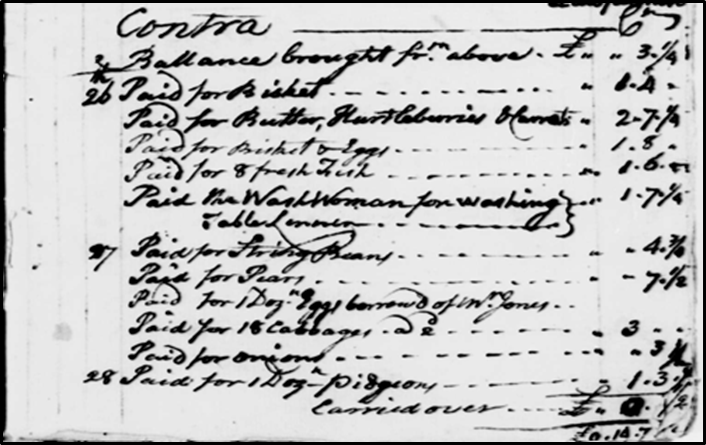 Contra
Ballance brought fr.m above - £ " " 3.1/4
26 Paid for Bisket " 1.4 "
Paid for Butter, Hurtleburries & " 2.7.1/4
Paid for Bisket & Eggs 1.8 "
Paid for 8 fresh Fish " 1.6.
Paid the Wash Woman for washing } " 1.7.1/4
Table Lennen
27 Paid for String Beans " 4.
Paid for Pears - 7.1/2
Paid for 1 Doz.n Eggs borrow'd of Wm. Jones
Paid for 18 Cabbages a 2d " 3
Paid for onions " " 3
28 Paid for 1 Doz.n Pidgeons " 1.3.
Carried over £ "
14.7